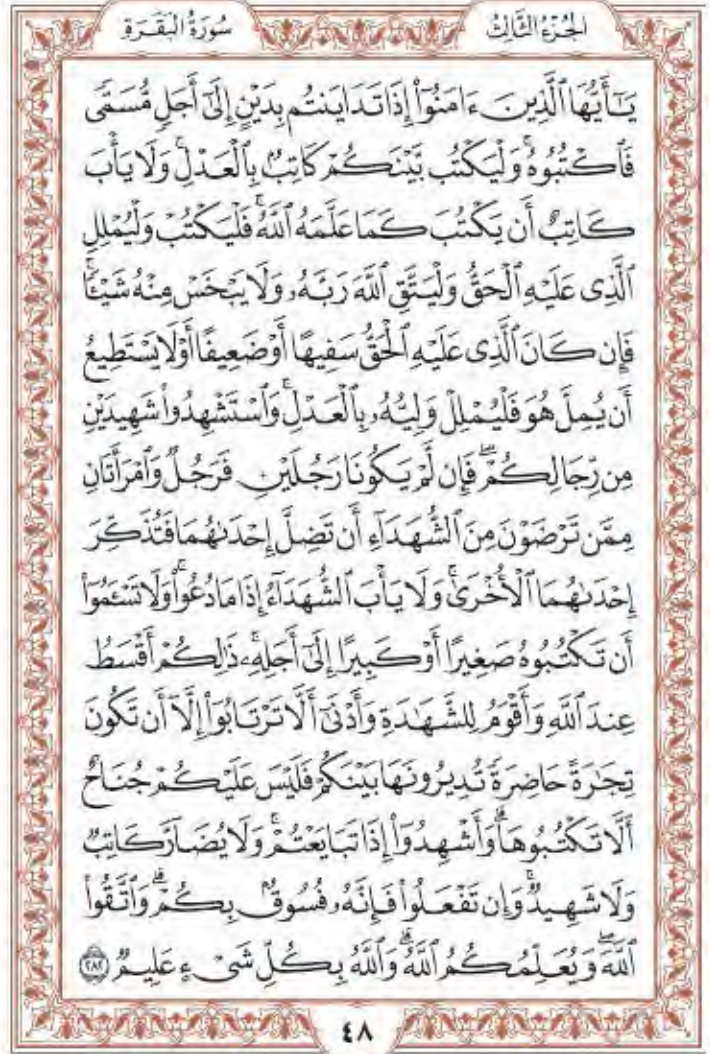 الجُزْءُ الثَّالِثُ
سُورَةُ الْبَقَرَةِ
يَـٰٓأَيُّهَا ٱلَّذِينَ ءَامَنُوٓا۟ إِذَا تَدَايَنتُم بِدَيْنٍ إِلَىٰٓ أَجَلٍ مُّسَمًّى
فَٱكْتُبُوهُ ۚ وَلْيَكْتُب بَّيْنَكُمْ كَاتِبٌۢ بِٱلْعَدْلِ ۚ وَلَا يَأْبَ
كَاتِبٌ أَن يَكْتُبَ كَمَا عَلَّمَهُ ٱللَّهُ ۚ فَلْيَكْتُبْ وَلْيُمْلِلِ
ٱلَّذِى عَلَيْهِ ٱلْحَقُّ وَلْيَتَّقِ ٱللَّهَ رَبَّهُۥ وَلَا يَبْخَسْ مِنْهُ شَيْـًٔا ۚ
فَإِن كَانَ ٱلَّذِى عَلَيْهِ ٱلْحَقُّ سَفِيهًا أَوْ ضَعِيفًا أَوْ لَا يَسْتَطِيعُ
أَن يُمِلَّ هُوَ فَلْيُمْلِلْ وَلِيُّهُۥ بِٱلْعَدْلِ ۚ وَٱسْتَشْهِدُوا۟ شَهِيدَيْنِ
مِن رِّجَالِكُمْ ۖ فَإِن لَّمْ يَكُونَا رَجُلَيْنِ فَرَجُلٌ وَٱمْرَأَتَانِ
مِمَّن تَرْضَوْنَ مِنَ ٱلشُّهَدَآءِ أَن تَضِلَّ إِحْدَىٰهُمَا فَتُذَكِّرَ
إِحْدَىٰهُمَا ٱلْأُخْرَىٰ ۚ وَلَا يَأْبَ ٱلشُّهَدَآءُ إِذَا مَا دُعُوا۟ ۚ وَلَا تَسْـَٔمُوٓا۟
أَن تَكْتُبُوهُ صَغِيرًا أَوْ كَبِيرًا إِلَىٰٓ أَجَلِهِۦ ۚ ذَٰلِكُمْ أَقْسَطُ
عِندَ ٱللَّهِ وَأَقْوَمُ لِلشَّهَـٰدَةِ وَأَدْنَىٰٓ أَلَّا تَرْتَابُوٓا۟ ۖ إِلَّآ أَن تَكُونَ
تِجَـٰرَةً حَاضِرَةً تُدِيرُونَهَا بَيْنَكُمْ فَلَيْسَ عَلَيْكُمْ جُنَاحٌ
أَلَّا تَكْتُبُوهَا ۗ وَأَشْهِدُوٓا۟ إِذَا تَبَايَعْتُمْ ۚ وَلَا يُضَآرَّ كَاتِبٌ
وَلَا شَهِيدٌ ۚ وَإِن تَفْعَلُوا۟ فَإِنَّهُۥ فُسُوقٌۢ بِكُمْ ۗ وَٱتَّقُوا۟
ٱللَّهَ ۖ وَيُعَلِّمُكُمُ ٱللَّهُ ۗ وَٱللَّهُ بِكُلِّ شَىْءٍ عَلِيمٌ ٢٨٢
٤٨